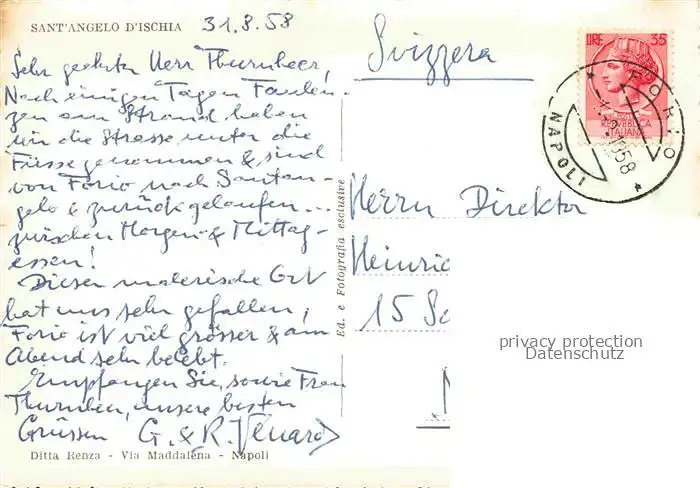 SANT'ANGELO D'ISCHIA 31.8.58
Sehr geehrter Herr Thurnheer,
Nach einigen Tagen Faulen-
zen am Strand haben
wir die Strasse unter die
Füsse genommen & sind
von Forio nach Santan-
gelo & zurück gelaufen...
zwischen Morgen- & Mittag-
essen!
Dieser malerische Ort
hat uns sehr gefallen,
Forio ist viel grösser & am
Abend sehr belebt.
Empfangen Sie, sowie Frau
Thurnheer, unsere besten
Grüssen G. & R.
Ditta Renza - Via Maddalena - Napoli
Ed. e Fotografia esclusive
Svizzera
LIRE 35
REPVBBLICA
ITALIANA
FORIO
1958
NAPOLI
Herrn Direktor
Heinric
15
privacy protection
Datenschutz